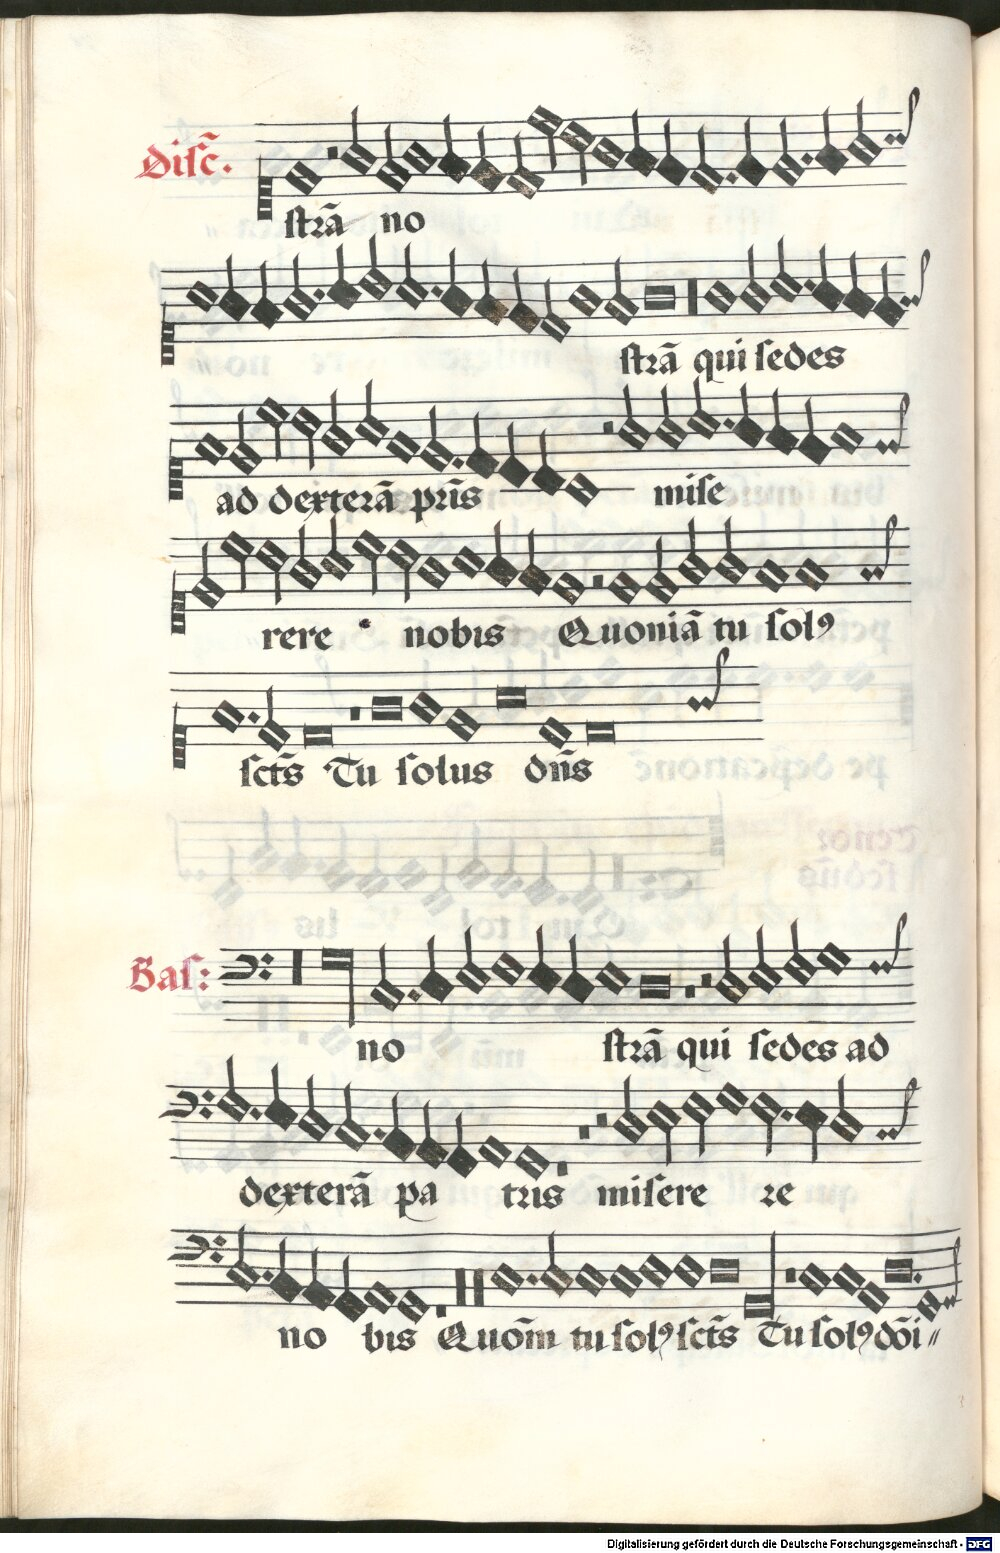 Disc̄.
strā no
strā qui sedes
ad dexterā pr̄is mise
rere nobis Quoniā tu solꝰ
sct̄s Tu solus dn̄s
Bas:
no strā qui sedes ad
dexterā pa tris misere re
no bis Quom̄ tu solꝰ sct̄s Tu solꝰ dōi〃
Digitalisierung gefördert durch die Deutsche Forschungsgemeinschaft - DFG